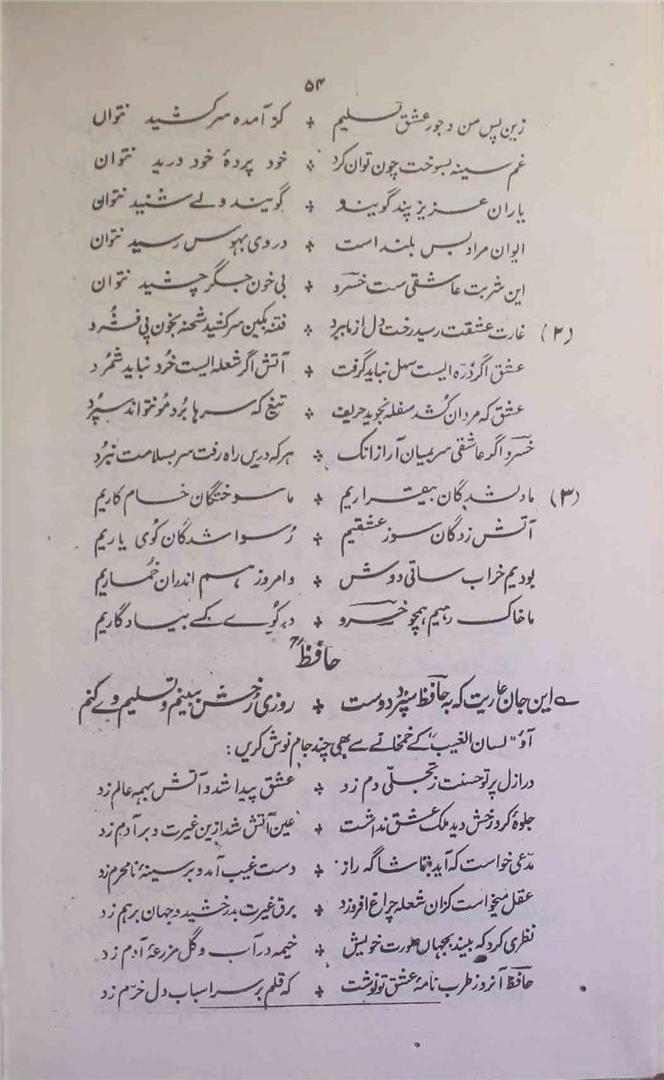 ۵۴
زین پس من و جور عشق تسلیم ٭ کز آمده سر کشید نتواں
غم سینہ بسوخت چون توان کرد ٭ خود پردۂ خود درید نتوان
یاران عزیز پند گویند و ٭ گویند ولے شنید نتوان
ایوان مراد بس بلند است ٭ در وی بہوس رسید نتوان
این شربت عاشقی ست خسرو ٭ بی خون جگر چشید نتوان
(۲) غارت عشقت رسید رخت دل از ما ببرد ٭ فتنہ بکین سر کشید شحنہ بخون پی فشرد
عشق اگر ذرہ ایست سہل نباید گرفت ٭ آتش اگر شعلہ ایست خُرد نباید شمُرد
عشق کہ مردان کُشد سفلہ نجوید حریف ٭ تیغ کہ سرہا بُرد مو نتواند سپرُد
خسرو اگر عاشقی سر بمیان آر ازانک ٭ ہر کہ دریں راہ رفت سر بسلامت نبرُد
(۳) ما دلشدگان بیقراریم ٭ ما سوختگان خام کاریم
آتش زدگان سوز عشقیم ٭ رُسوا شدگان کوی یاریم
بودیم خراب ساقی دوش ٭ و امروز ہم اندران خُماریم
ما خاک رہیم ہمچو خسرو ٭ در کُوے کسے بیادگاریم
حافظ
؎ این جان عاریت کہ بہ حافظ سپرد دوست ٭ روزی رُخش ببینم و تسلیم وے کنم
آؤ "لسان الغیب" کے خمخانے سے بھی چند جام نوش کریں:
در ازل پرتو حسنت ز تجلّی دم زد ٭ عشق پیدا شد و آتش بہمہ عالم زد
جلوۂ کرد رخش دید ملک عشق نداشت ٭ عین آتش شد ازین غیرت و بر آدم زد
مدّعی خواست کہ آید بتماشا گہ راز ٭ دست غیب آمد و بر سینۂ نامحرم زد
عقل میخواست کزان شعلہ چراغ افروزد ٭ برق غیرت بدرخشید و جہان برہم زد
نظری کرد کہ بیند بجہان صورت خویش ٭ خیمہ در آب و گل مزرعۂ آدم زد
حافظ آنروز طرب نامۂ عشق تو نوشت ٭ کہ قلم بر سر اسباب دل خرّم زد